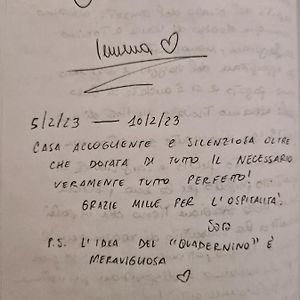 5/2/23 — 10/2/23
CASA ACCOGLIENTE E SILENZIOSA OLTRE
CHE DOTATA DI TUTTO IL NECESSARIO
VERAMENTE TUTTO PERFETTO!
GRAZIE MILLE PER L'OSPITALITÀ.
P.S. L'IDEA DEL "QUADERNINO" È
MERAVIGLIOSA